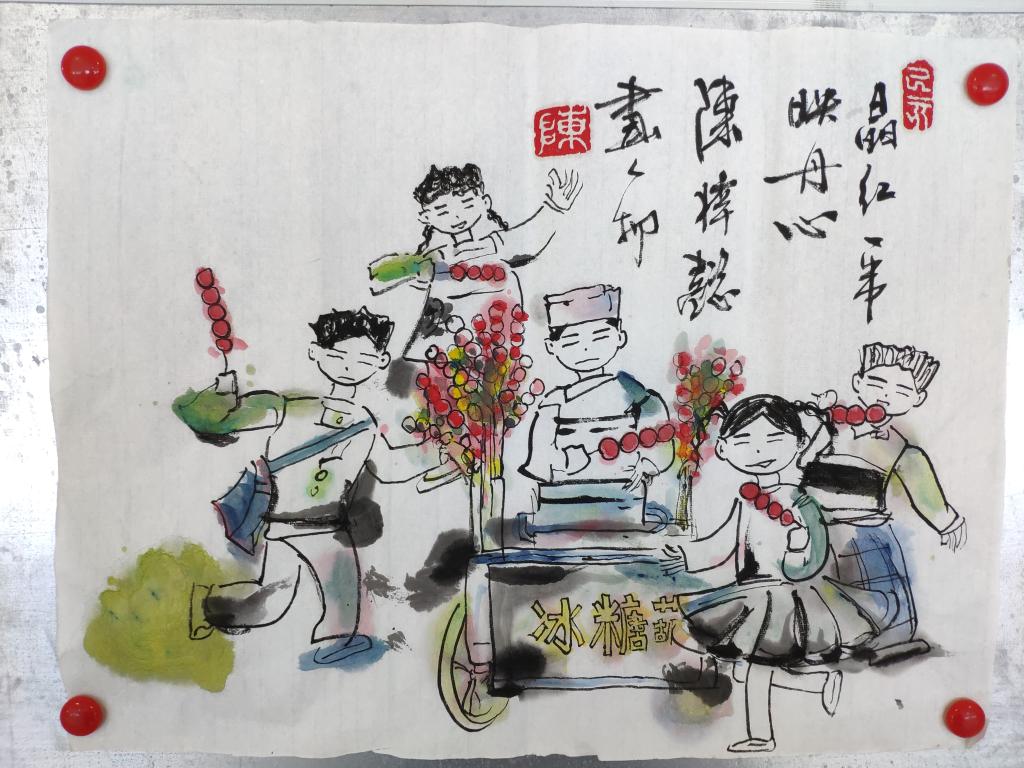 晶红一串
映丹心
陳梓懿
畫
陳
冰糖葫